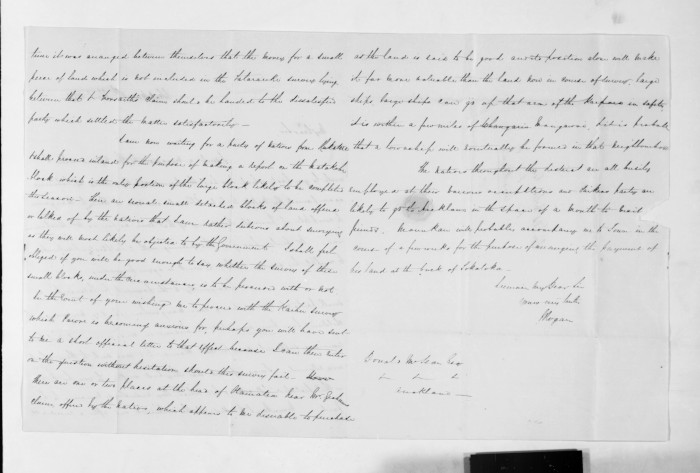 time it was arranged between themselves that the money for a small
piece of land which is not included in the survey lying
between that & Forsaiths Claim should be handed to the dissatisfied
party which settled the matter satisfactorily —
I am now waiting for a party of natives from
& shall proceed inland for the purpose of making a report on the Matakohe
block which is the only portion of the large block likely to be completed
this season — There are several small detached blocks of land offered
or talked of by the natives that I am rather dubious about surveying
as they will most likely be objected to by the Government I shall feel
obliged if you will be good enough to say whether the survey of these
small blocks, under the circumstances, is to be proceeded with or not
In the event of your wishing me to proceed with the Kaihu survey
which Parore is becoming anxious for, perhaps you will have sent
to me a short official letter to that effect because I can then enter
on the question without hesitation should this survey fail
There are one or two places at the head of Wairoa near Mr
claim offered by the natives, which appears to me desirable to purchase
as the land is said to be good and its position alone will make
it far more valuable than the land now in course of survey, large
ships, large ships can go up that arm of the Kaipara in safety
& it is within a few miles of Mangawai, & it is probable
that a township will eventually be formed in that neighbourhood
The natives throughout the district are all busily
employed at their various occupations and
likely to go to Auckland in the space of a month to visit
friends. will probably accompany me to Town in the
course of a few weeks for the purpose of arranging the payment of
his land at the back of Tokatoka.
I remain My Dear Sir
Yours very truly
Rogan
Donald McLean Esq
Auckland —